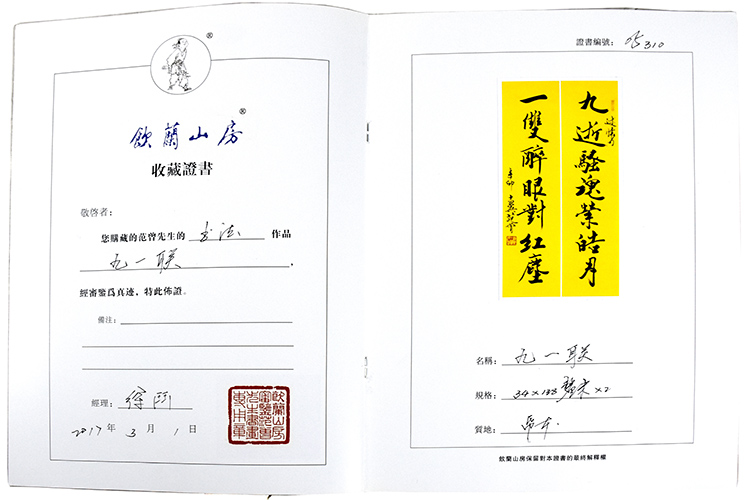 ®
飲蘭山房®
收藏證書
敬啓者：
您購藏的范曾先生的 书法 作品
九一联.
經審鑒爲真迹，特此佈證。
備注：
經理：
2017年3月1日
證書編號：310
九逝騷魂縈皓月
一雙醉眼對紅塵
辛卯 十翼范曾
名稱：九一联
規格：34×138 厘米 ×2
質地：
飲蘭山房保留對本證書的最終解釋權